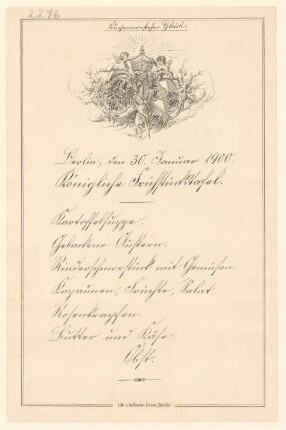 2276
Küchenmeister
Berlin, den 30. Januar 1900.
Königliche Frühstückstafel.
Kartoffelsuppe.
Gebackene Austern.
Rinderschmorstück mit Gemüsen.
Kapaunen, Früchte, Salat.
Rosenkrapfen.
Butter und Käse.
Obst.